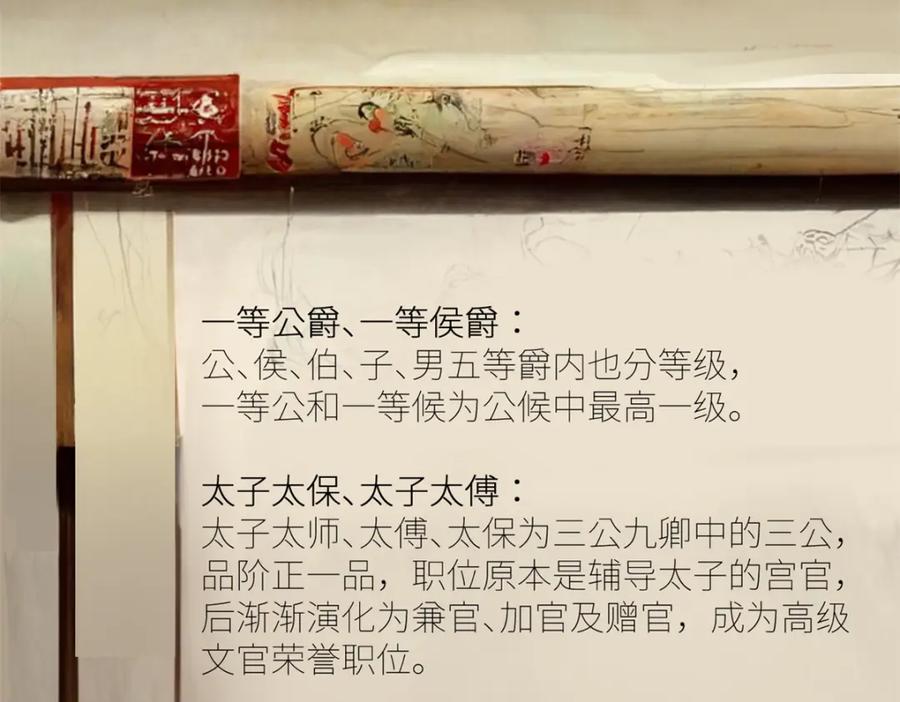 一等公爵、一等侯爵：
公、侯、伯、子、男五等爵内也分等级，
一等公和一等候为公候中最高一级。
太子太保、太子太傅：
太子太师、太傅、太保为三公九卿中的三公，
品阶正一品，职位原本是辅导太子的宫官，
后渐渐演化为兼官、加官及赠官，成为高级
文官荣誉职位。